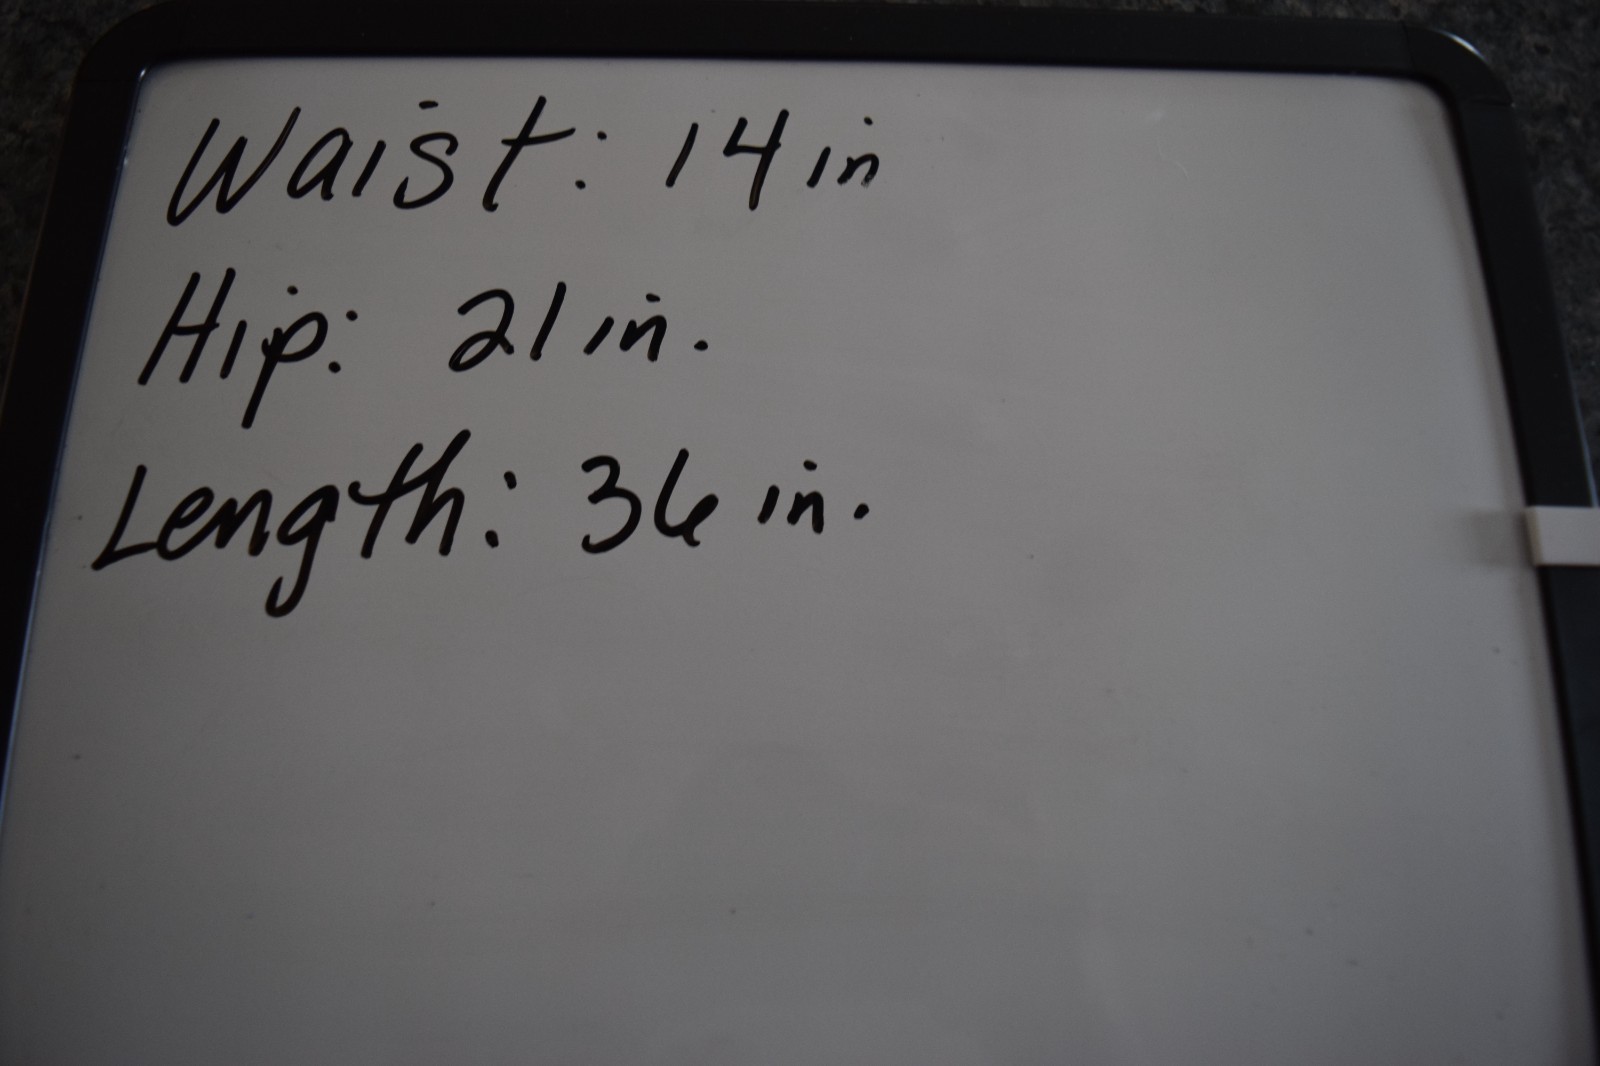 Waist: 14 in
Hip: 21 in.
Length: 36 in.